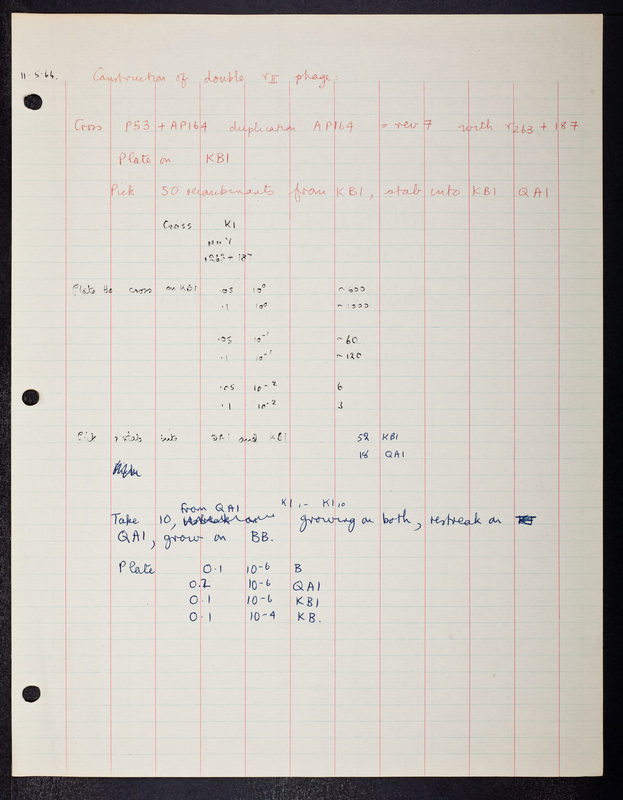 11.5.64. Construction of double rII phage:
Cross P53 + AP164 duplication AP164 = rev 7 with r263 + 187
Plate on KB1
Pick 50 recombinants from KB1, stab into KB1 QA1
Cross K1
rev V
r263 + 187
Plate the cross on KB1 .05 10⁰ ~600
.1 10⁰ ~1000
.05 10⁻¹ ~60
.1 10⁻¹ ~120
.05 10⁻² 6
.1 10⁻² 3
Pick & stab into QA1 and KB1 52 KB1
18 QA1
from QA1 K1,1 – K1,10
Take 10, growing on both, restreak on
QA1, grow on BB.
Plate 0.1 10⁻⁶ B
0.2 10⁻⁶ QA1
0.1 10⁻⁶ KB1
0.1 10⁻⁴ KB.